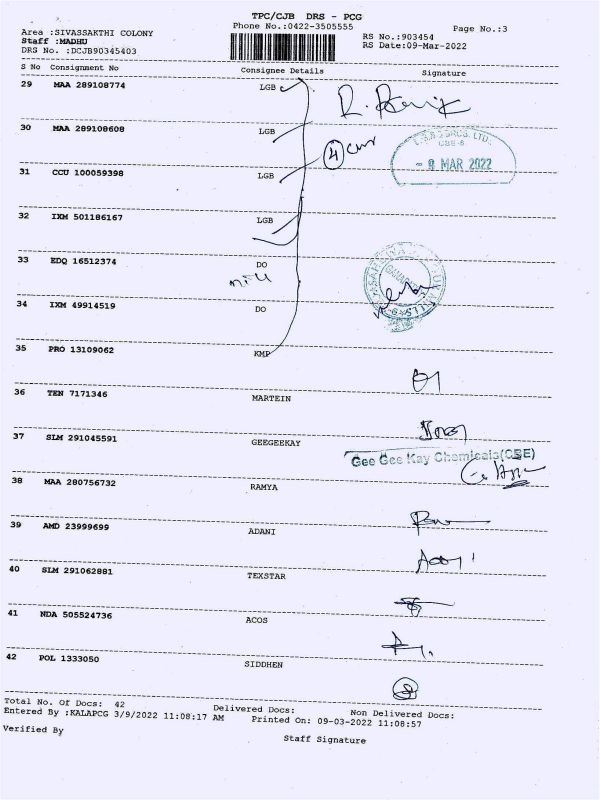 TPC/CJB DRS - PCG
Phone No.:0422-3505555
Page No.:3
Area :SIVASSAKTHI COLONY
RS No.:903454
Staff :MADHU
RS Date:09-Mar-2022
DRS No. :DCJB90345403
S No Consignment No Consignee Details Signature
29 MAA 289108774 LGB
30 MAA 289108608 LGB
4
- 9 MAR 2022
31 CCU 100059398 LGB
32 IXM 501186167 LGB
33 EDQ 16512374 DO
34 IXM 49914519 DO
35 PRO 13109062 KMP
36 TEN 7171346 MARTEIN
37 SLM 291045591 GEEGEEKAY
Gee Gee Kay Chemicals(CBE)
38 MAA 280756732 RAMYA
39 AMD 23999699 ADANI
40 SLM 291062881 TEXSTAR
41 NDA 505524736 ACOS
42 POL 1333050 SIDDHEN
Total No. Of Docs: 42 Delivered Docs: Non Delivered Docs:
Entered By :KALAPCG 3/9/2022 11:08:17 AM Printed On: 09-03-2022 11:08:57
Verified By Staff Signature